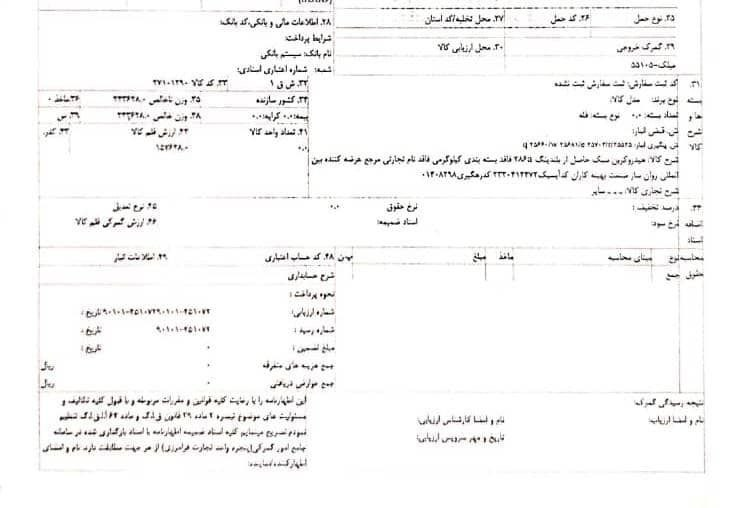 ۲۵. نوع حمل
۲۶. کد حمل ۰
۲۷. محل تخلیه/کد استان
۲۸. اطلاعات مالی و بانکی، کد بانک:
شرایط پرداخت:
نام بانک: سیستم بانکی
شعبه: شماره اعتباری اسنادی:
۲۹. گمرک خروجی
میلک-۵۵۱۰۵
۳۰. محل ارزیابی کالا
۳۱.
بسته
ها و
شرح
کالا
کد ثبت سفارش: ثبت سفارش ثبت نشده
نوع برند: مدل کالا:
تعداد بسته: ۰،۰ نوع بسته: فله
ش. قبض انبار:
ش. پتگیری انبار:
شرح کالا: هیدروکربن سبک حاصل از بلندینگ ۲۸۶a فاقد بسته بندی کیلوگرمی فاقد نام تجارتی مرجع عرضه کننده بین
المللی روان ساز صنعت بهینه کاران کدآیسیک ۲۳۲۰۴۱۲۴۷۲ کدرهگیری ۰۱۴۰۸۲۹۸
شرح تجاری کالا: ... سایر
۳۲. ش ق ۱
۳۳. کد کالا ۲۷۱۰۱۲۹۰
۳۴. کشور سازنده
۳۵. وزن ناخالص ۲۳۳۶۲۸.۰
۳۶. ماخذ ۰
بیمه:۰،۰ کرایه:۰،۰
۳۸. وزن خالص ۲۳۳۶۲۸.۰
۳۹. س
۴۱. تعداد واحد کالا
۰،۰
۴۲. ارزش قلم کالا
۱۵۷۶۲۸.۰
۴۳. کفر.
۴۴.
اضافه
اسناد
درصد تخفیف:
نرخ سود:
نرخ حقوق ۰،۰
اسناد ضمیمه:
۴۵. نوع تعدیل
۴۶. ارزش گمرکی قلم کالا
محاسبه
حقوق
نوع
مبنای محاسبه
ماخذ
مبلغ
جمع
۴۸. کد حساب اعتباری
۴۹. اطلاعات انبار
شرح حسابداری
نحوه پرداخت:
شماره ارزیابی: تاریخ:
شماره رسید: ۹۰۱۰۱-۴۵۱۰۷۲ تاریخ:
مبلغ تضمین: ۰ تاریخ:
جمع هزینه های متفرقه ۰ ریال
جمع عوارض دریافتی ۰ ریال
نتیجه رسیدگی گمرک:
نام و امضا ارزیاب:
نام و امضا کارشناس ارزیابی:
تاریخ و مهر سرویس ارزیابی:
این اظهارنامه را با رعایت کلیه قوانین و مقررات مربوطه و با قبول کلیه تکالیف و
مسئولیت های موضوع تبصره ۲ ماده ۲۹ قانون ق.ا.گ و ماده ۶۴ آ.ا.ق.ا.گ تنظیم
نمودم تصریح مینمایم کلیه اسناد ضمیمه اظهارنامه با اسناد بارگذاری شده در سامانه
جامع امور گمرکی(پنجره واحد تجارت فرامرزی) از هر جهت مطابقت دارد. نام و امضای
اظهارکننده/نماینده: